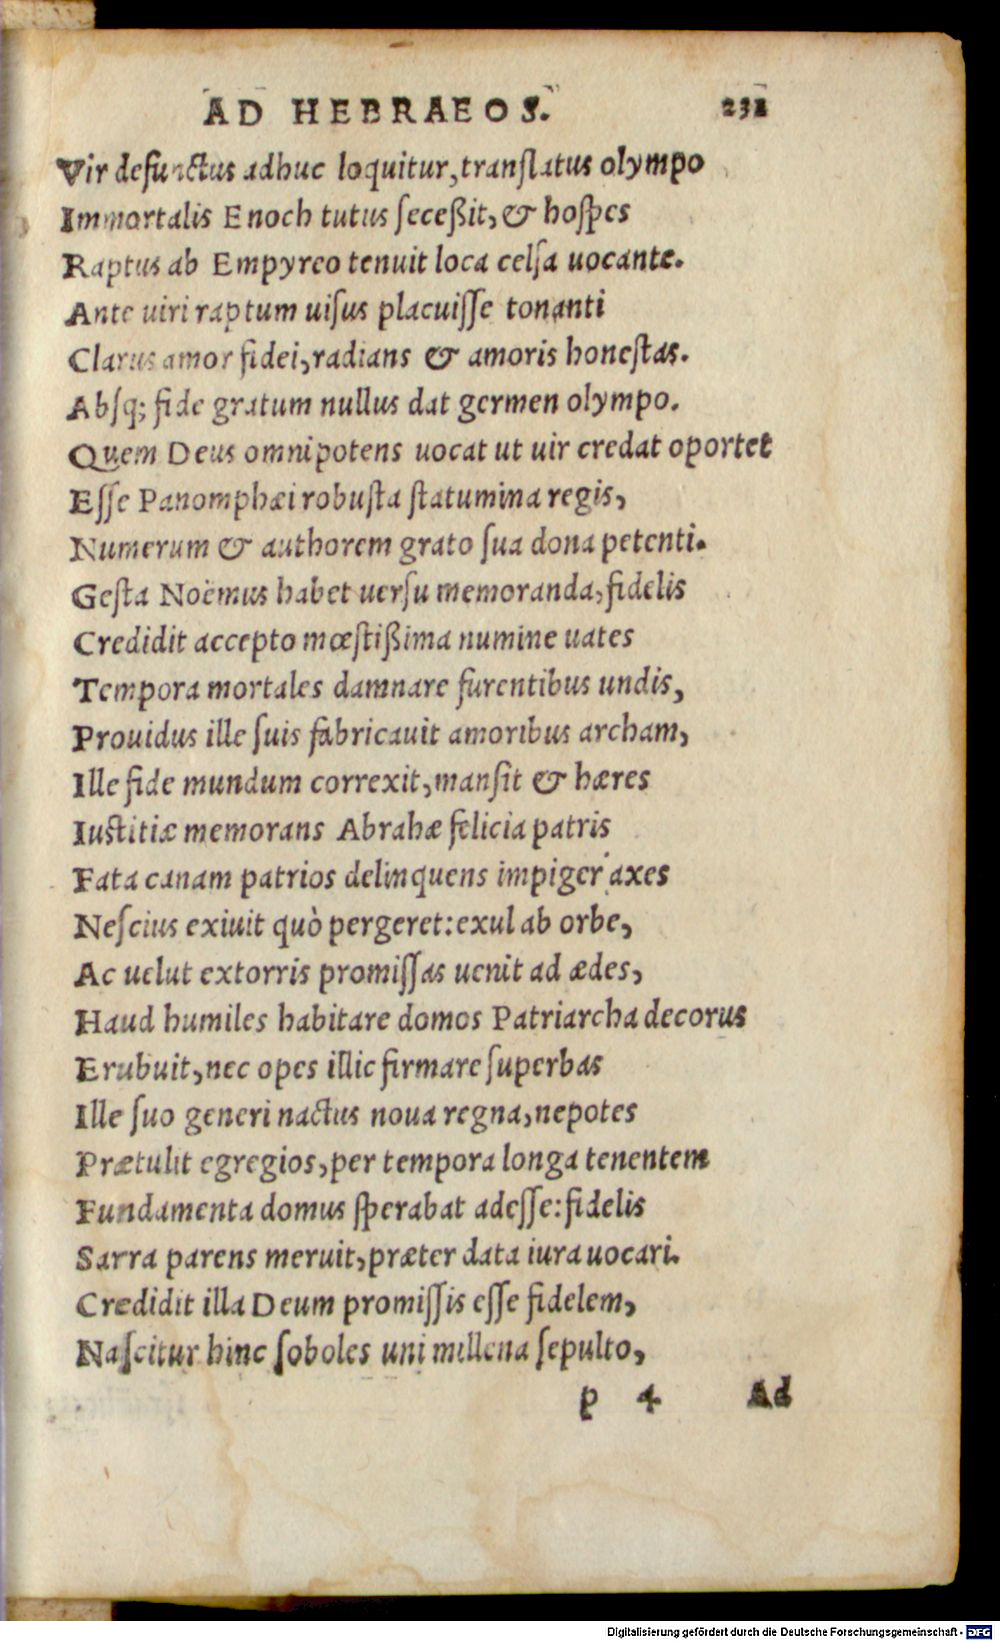 AD HEBRAEOS. 232
Vir defunctus adhuc loquitur, translatus olympo
Immortalis Enoch tutus seceßit, & hospes
Raptus ab Empyreo tenuit loca celsa uocante.
Ante uiri raptum uisus placuisse tonanti
Clarus amor fidei, radians & amoris honestas.
Absq; fide gratum nullus dat germen olympo.
Quem Deus omnipotens uocat ut uir credat oportet
Esse Panomphæi robusta statumina regis,
Numerum & authorem grato sua dona petenti.
Gesta Noëmus habet uersu memoranda, fidelis
Credidit accepto mœstißima numine uates
Tempora mortales damnare furentibus undis,
Prouidus ille suis fabricauit amoribus archam,
Ille fide mundum correxit, mansit & hæres
Iustitiæ memorans Abrahæ felicia patris
Fata canam patrios delinquens impiger axes
Nescius exiuit quò pergeret: exul ab orbe,
Ac uelut extorris promissas uenit ad ædes,
Haud humiles habitare domos Patriarcha decorus
Erubuit, nec opes illic firmare superbas
Ille suo generi nactus noua regna, nepotes
Prætulit egregios, per tempora longa tenentem
Fundamenta domus sperabat adesse: fidelis
Sarra parens meruit, præter data iura uocari.
Credidit illa Deum promissis esse fidelem,
Nascitur hinc soboles uni millena sepulto,
p 4 Ad
Digitalisierung gefördert durch die Deutsche Forschungsgemeinschaft - DFG